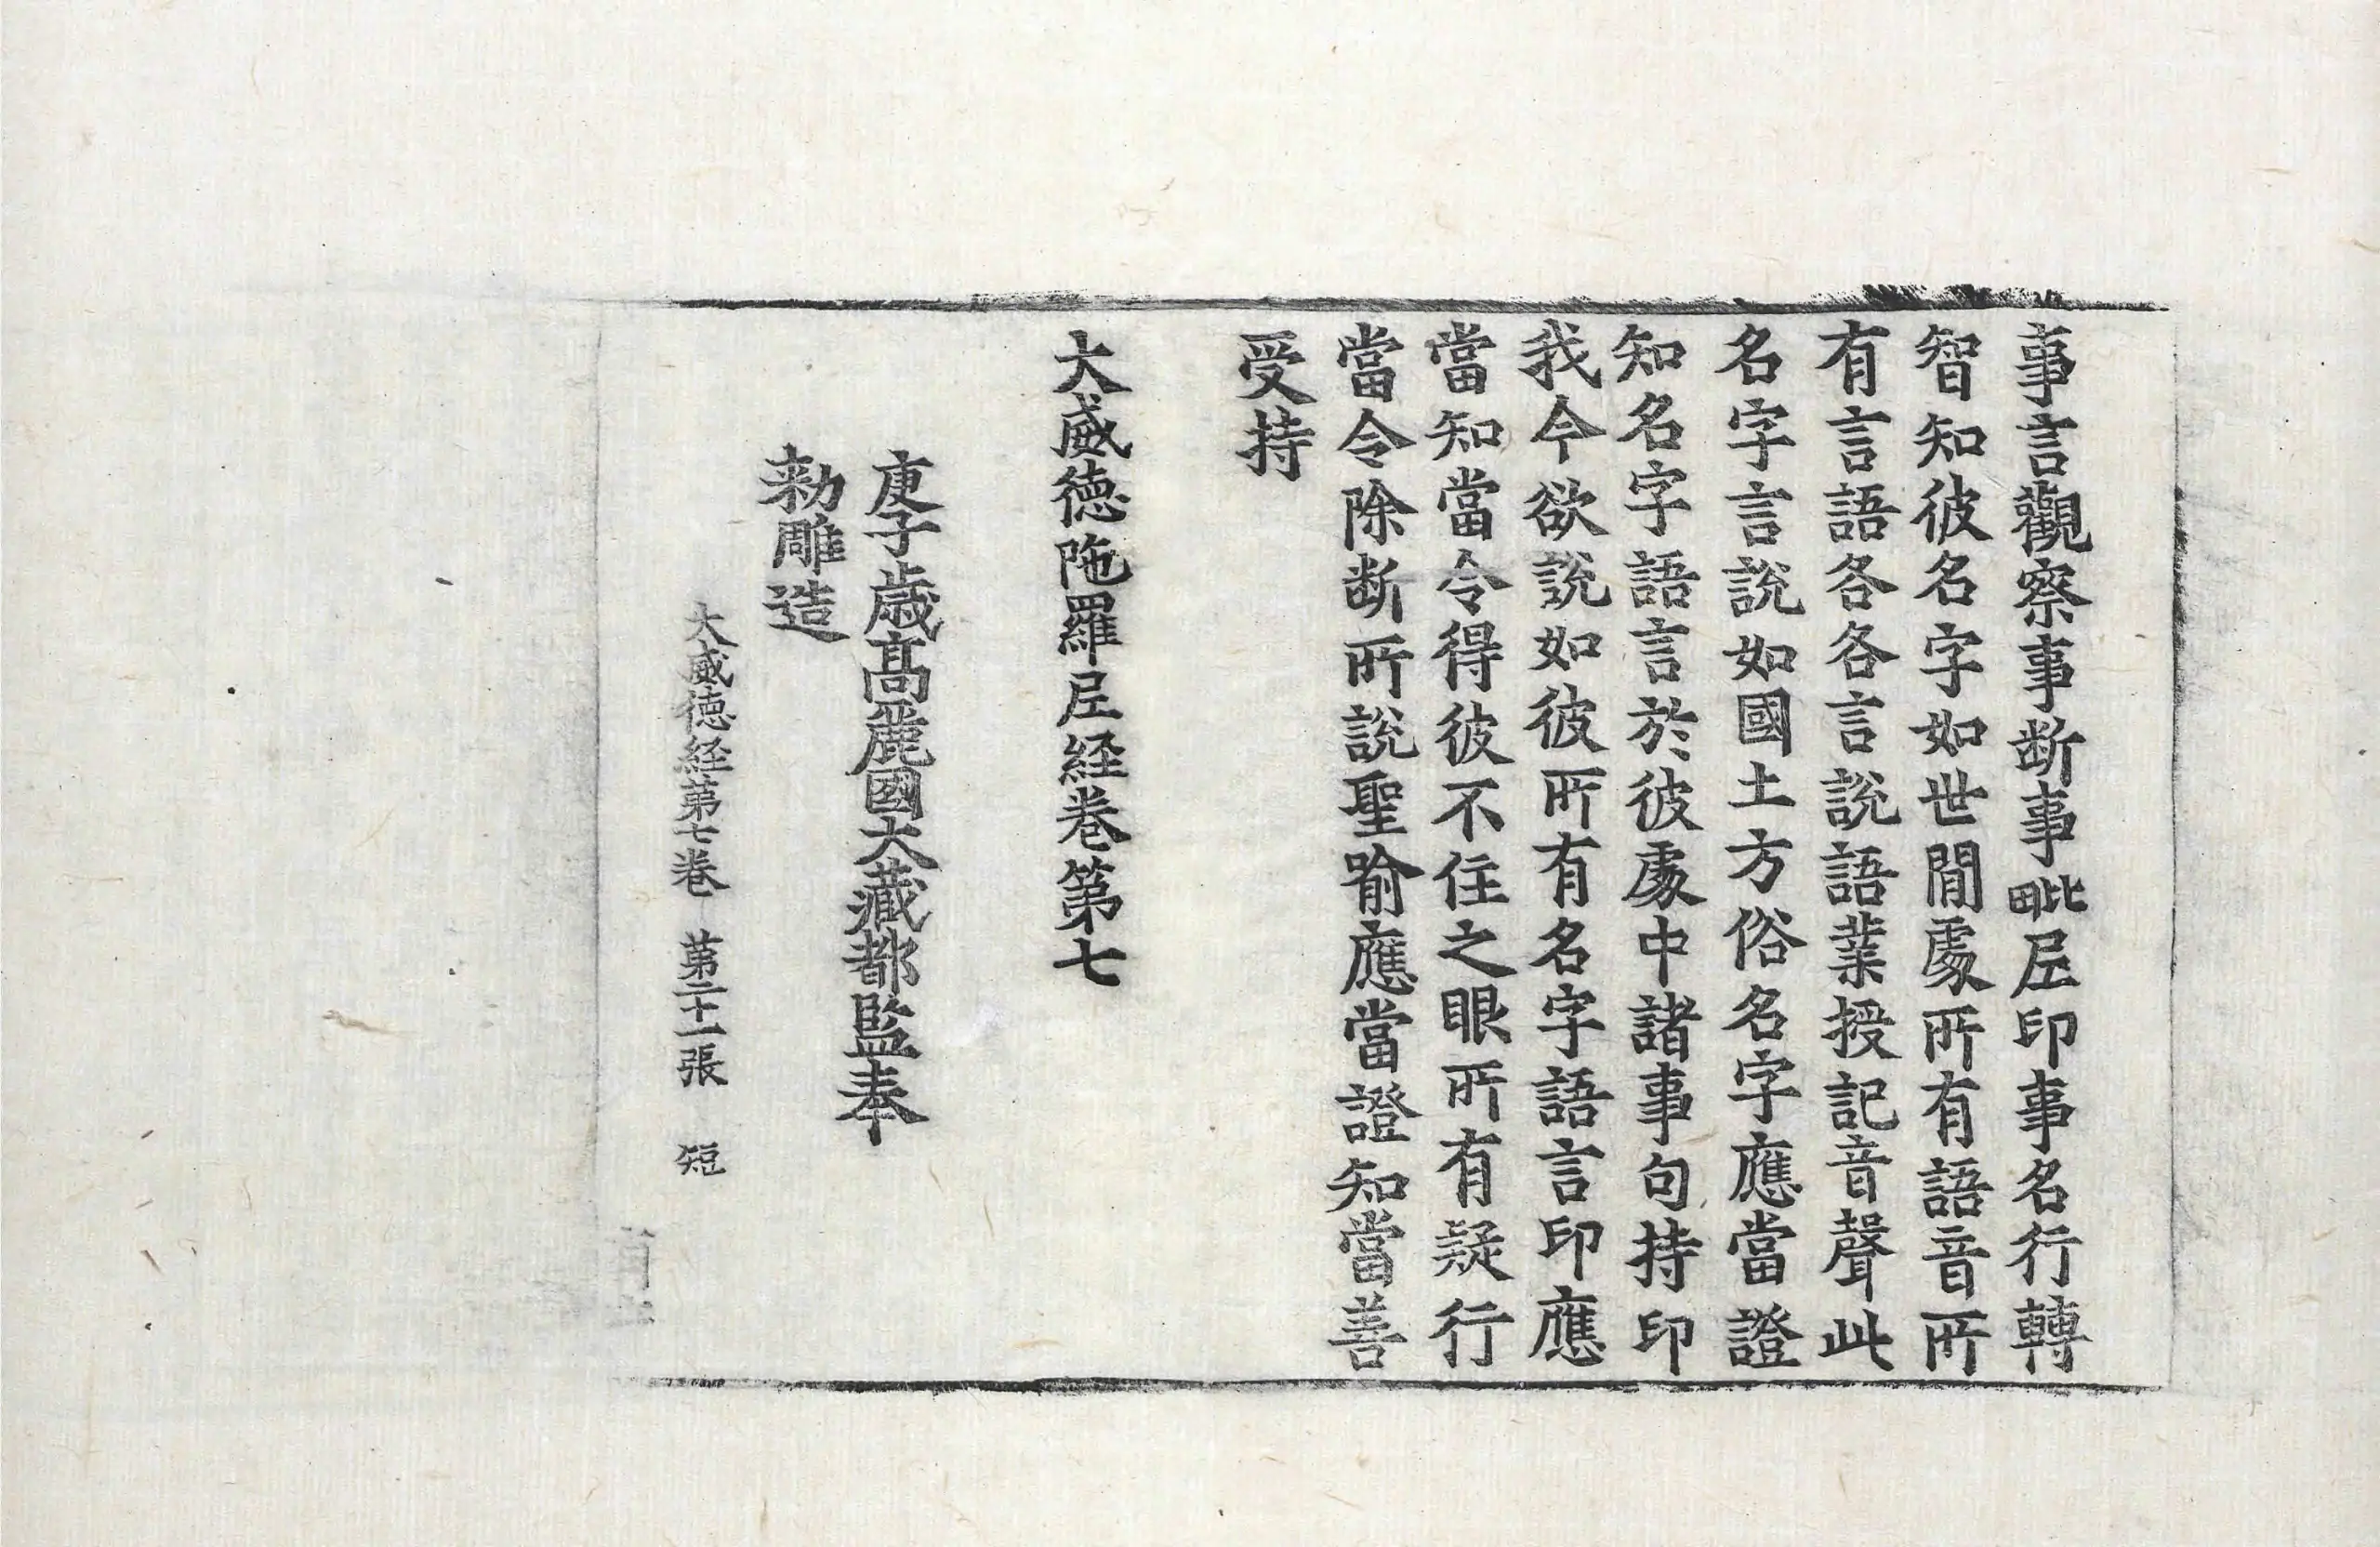 事言觀察事斷事毗𡰱印事名行轉
智知彼名字如世間處所有語音所
有言語各各言說語業授記音聲此
名字言說如國土方俗名字應當證
知名字語言於彼處中諸事句持印
我今欲說如彼所有名字語言印應
當知當令得彼不住之眼所有疑行
當令除断所說聖喻應當證知當善
受持
大威德陁羅𡰱経卷第七
庚子歲高麗國大藏都監奉
勅雕造
大威徳経第七卷 第二十一張 短